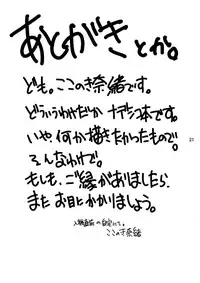 あとがきとか。
ども。ここのき奈緒です。
どういうわけだか ナデシコ本です。
いや、何か描きたかったもので。
そんなわけで。
もしも、ご縁がありましたら、
また お目にかかりましょう。
ここのき奈緒